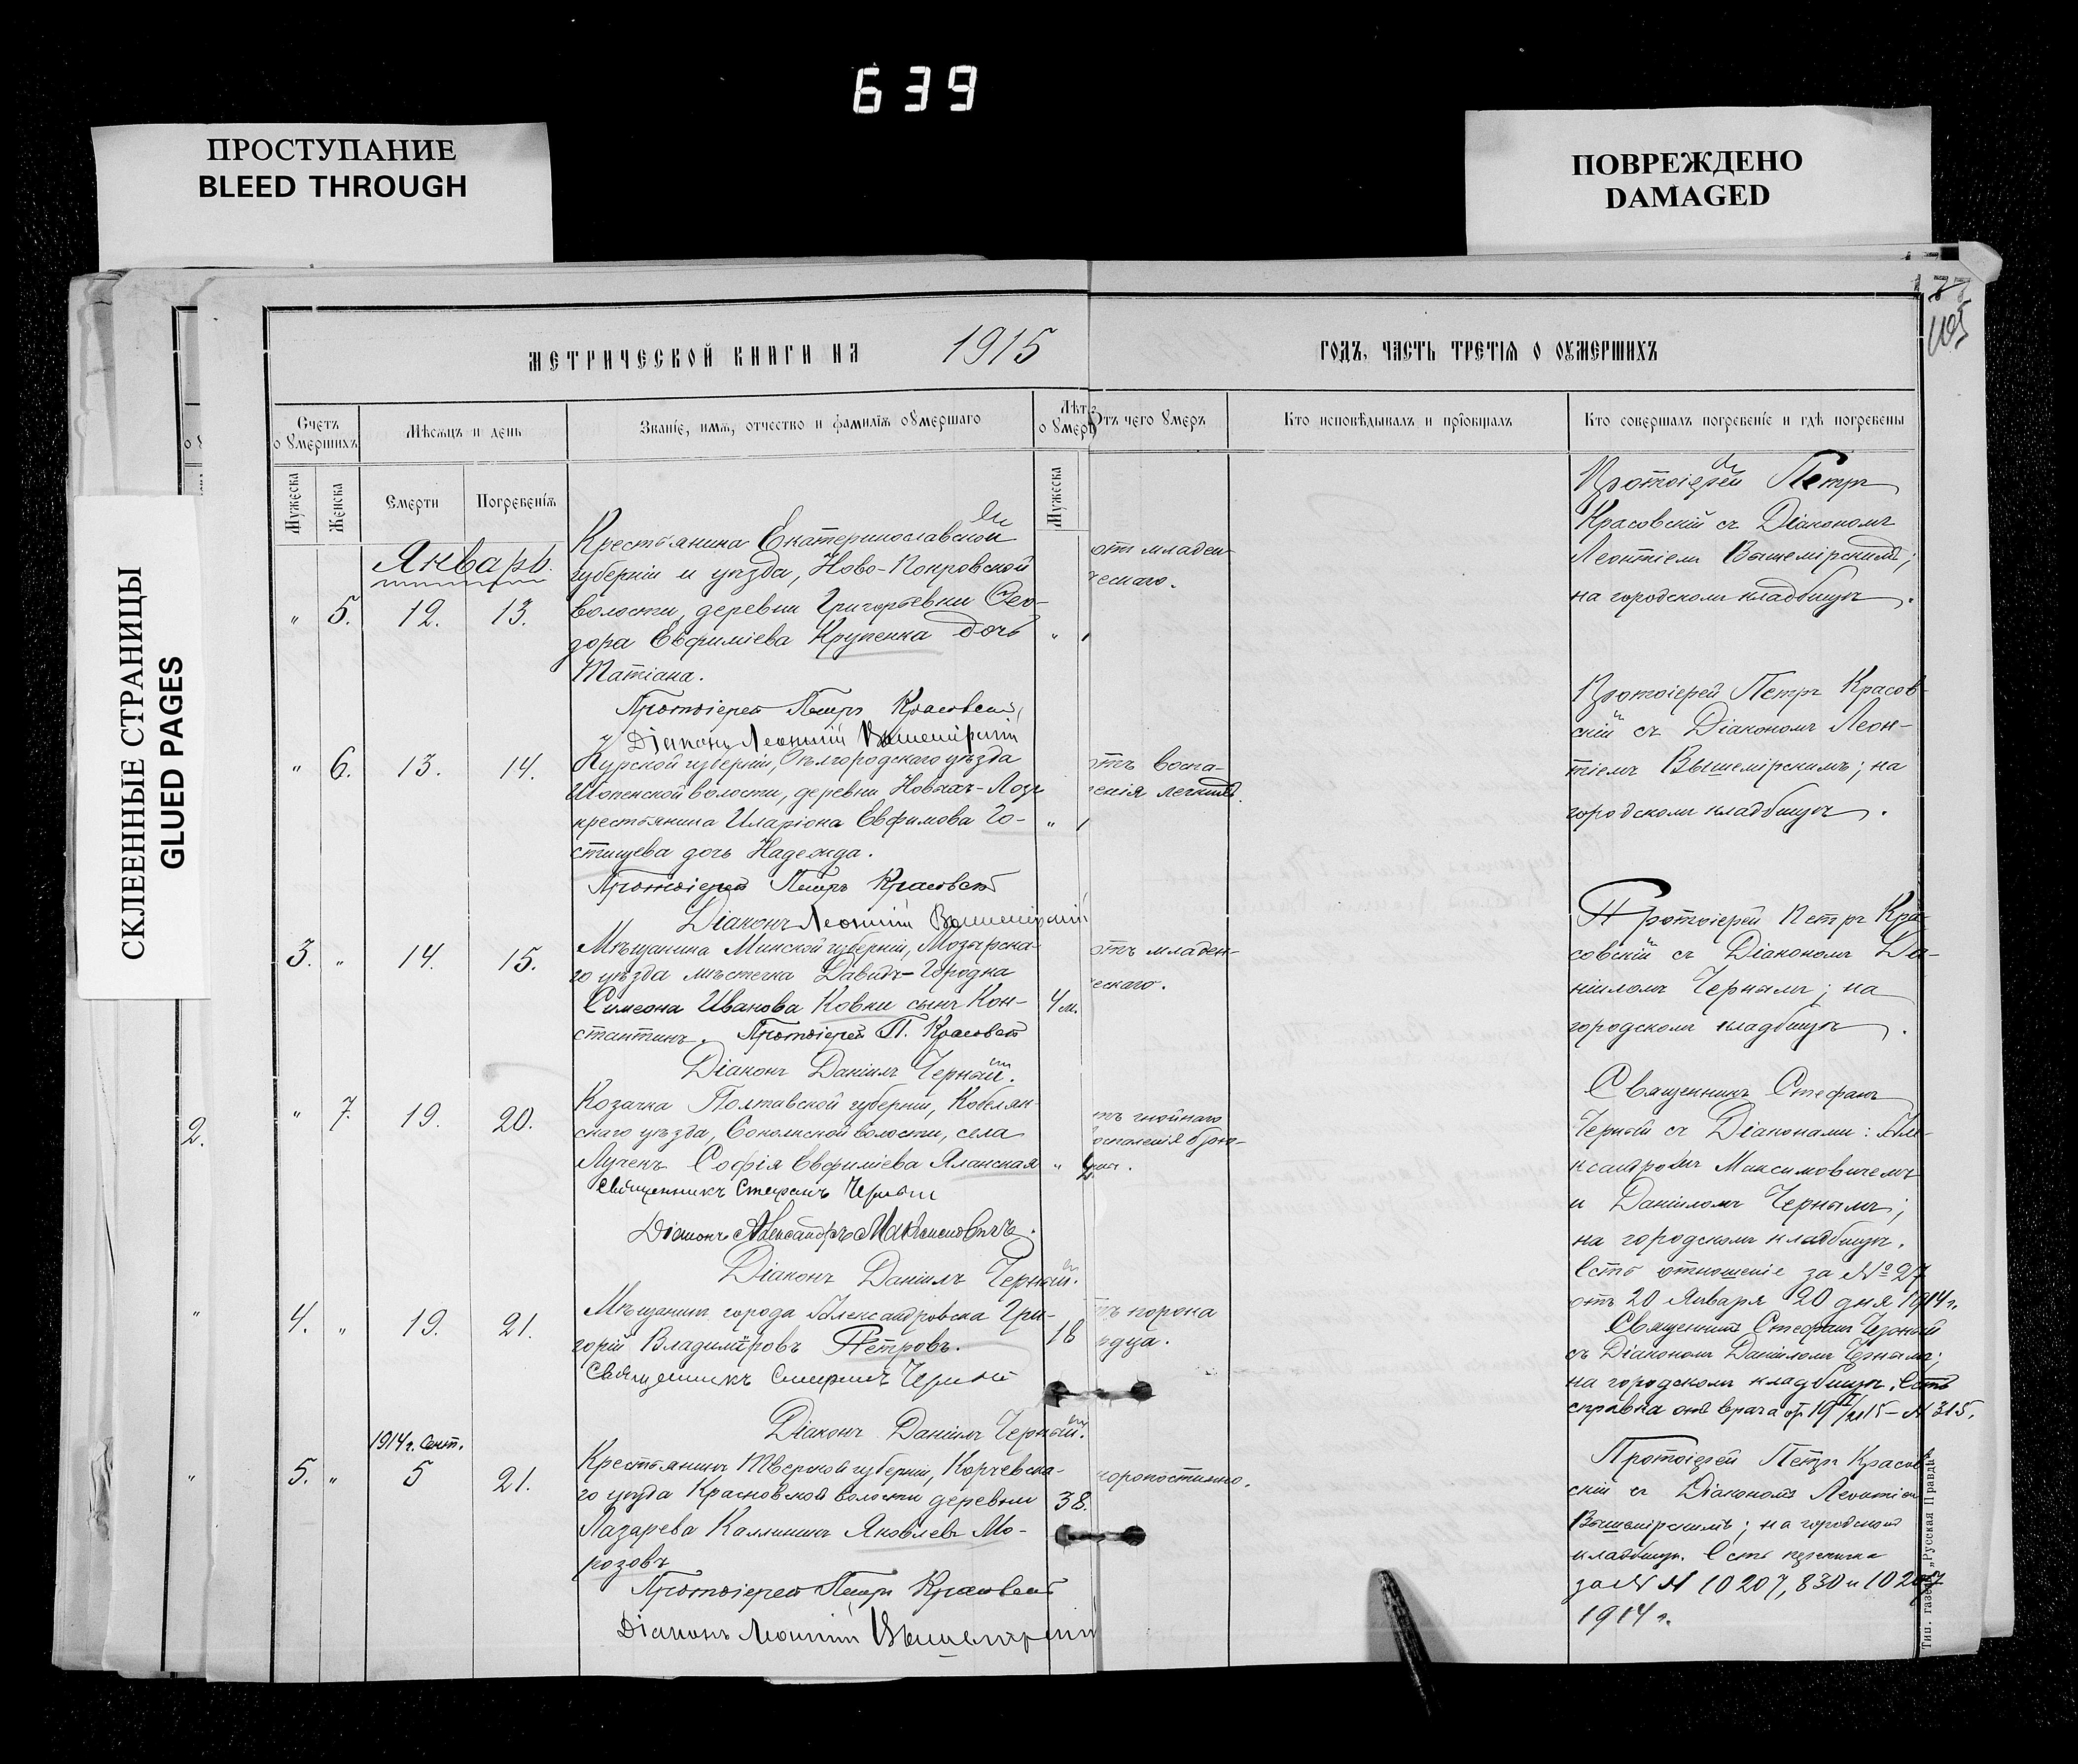 639
ПРОСТУПАНИЕ
BLEED THROUGH
ПОВРЕЖДЕНО
DAMAGED
СКЛЕЕННЫЕ СТРАНИЦЫ
GLUED PAGES
МЕТРИЧЕСКОЙ КНИГИ НА 1915
ГОДЪ, ЧАСТЬ ТРЕТІЯ О ОУМЕРШИХЪ
105
Счетъ
о Умершихъ
Мѣсяцъ и день
Званіе, имя, отчество и фамилія оУмершаго
Лѣт
о Умер
Отъ чего Умеръ
Кто исповѣдывалъ и пріобщалъ
Кто совершалъ погребеніе и гдѣ погребены
Мужеска
Женска
Смерти
Погребенія
Мужеска
Январь.
" 5. 12. 13.
Крестьянина Екатеринославской
губерніи и уѣзда, Ново-Покровской
волости, деревни Григорьевки Ѳео-
дора Евфиміева Крупенка дочь
Татіана.
Протоіерей Петръ Красовскій
Діаконъ Леонтій Вышемірскій
от младен-
ческаго.
Протоіерей Петръ
Красовскій съ Діакономъ
Леонтіемъ Вышемірскимъ;
на городскомъ кладбищѣ.
" 6. 13. 14.
Курской губерніи, Бѣлгородскаго уѣзда
Шопенской волости, деревни Новыхъ-Лозъ
крестьянина Иларіона Евфимова Го-
стищева дочь Надежда.
Протоіерей Петръ Красовскій
Діаконъ Леонтій Вышемірскій
отъ воспа-
ленія легкихъ.
Протоіерей Петръ Красов-
скій съ Діакономъ Леон-
тіемъ Вышемірскимъ; на
городскомъ кладбищѣ.
3. " 14. 15.
Мѣщанина Минской губерніи, Мозырска-
го уѣзда мѣстечка Давидъ-Городка
Симеона Иванова Ковки сынъ Кон-
стантинъ. Протоіерей П. Красовскій
Діаконъ Даніилъ Черный.
4 м.
отъ младен-
ческаго.
Протоіерей Петръ Кра-
совскій съ Діакономъ Да-
ніиломъ Чернымъ; на
городскомъ кладбищѣ.
2.
" 7. 19. 20.
Козачка Полтавской губерніи, Кобеляк-
скаго уѣзда, Сокольской волости, села
Лучекъ Софія Евфиміева Яланская
Священникъ Стефанъ Черный
Діаконъ Александръ Максимовичъ.
Діаконъ Даніилъ Черный.
отъ гнойнаго
воспаленія брю-
Священникъ Стефанъ
Черный съ Діаконами: Але-
ксандромъ Максимовичемъ
и Даніиломъ Чернымъ;
на городскомъ кладбищѣ.
Есть отношеніе за № 27
отъ 20 Января 20 дня 1914 г.
4. " 19. 21.
Мѣщанинъ города Александровска Гри-
горій Владиміровъ Петровъ.
Священникъ Стефанъ Черный
Діаконъ Даніилъ Черный.
18
отъ порока
сердца.
Священникъ Стефанъ Черный
съ Діакономъ Даніиломъ Чернымъ;
на городскомъ кладбищѣ. Есть
справка врача от 19 15 – № 315.
1914 г. Сент.
5. " 5 21.
Крестьянинъ Тверской губерніи, Корчевска-
го уѣзда Красновской волости деревни
Лазарева Каллиникъ Яковлевъ Мо-
розовъ
Протоіерей Петръ Красовскій
Діаконъ Леонтій Вышемірскій
38.
скоропостижно.
Протоіерей Петръ Красов-
скій съ Діакономъ Леонтіем
Вышемірскимъ; на городском
кладбищѣ. Есть переписка
за № № 10207, 830 и 10207
1914 г.
Тип. газеты „Русская Правда"